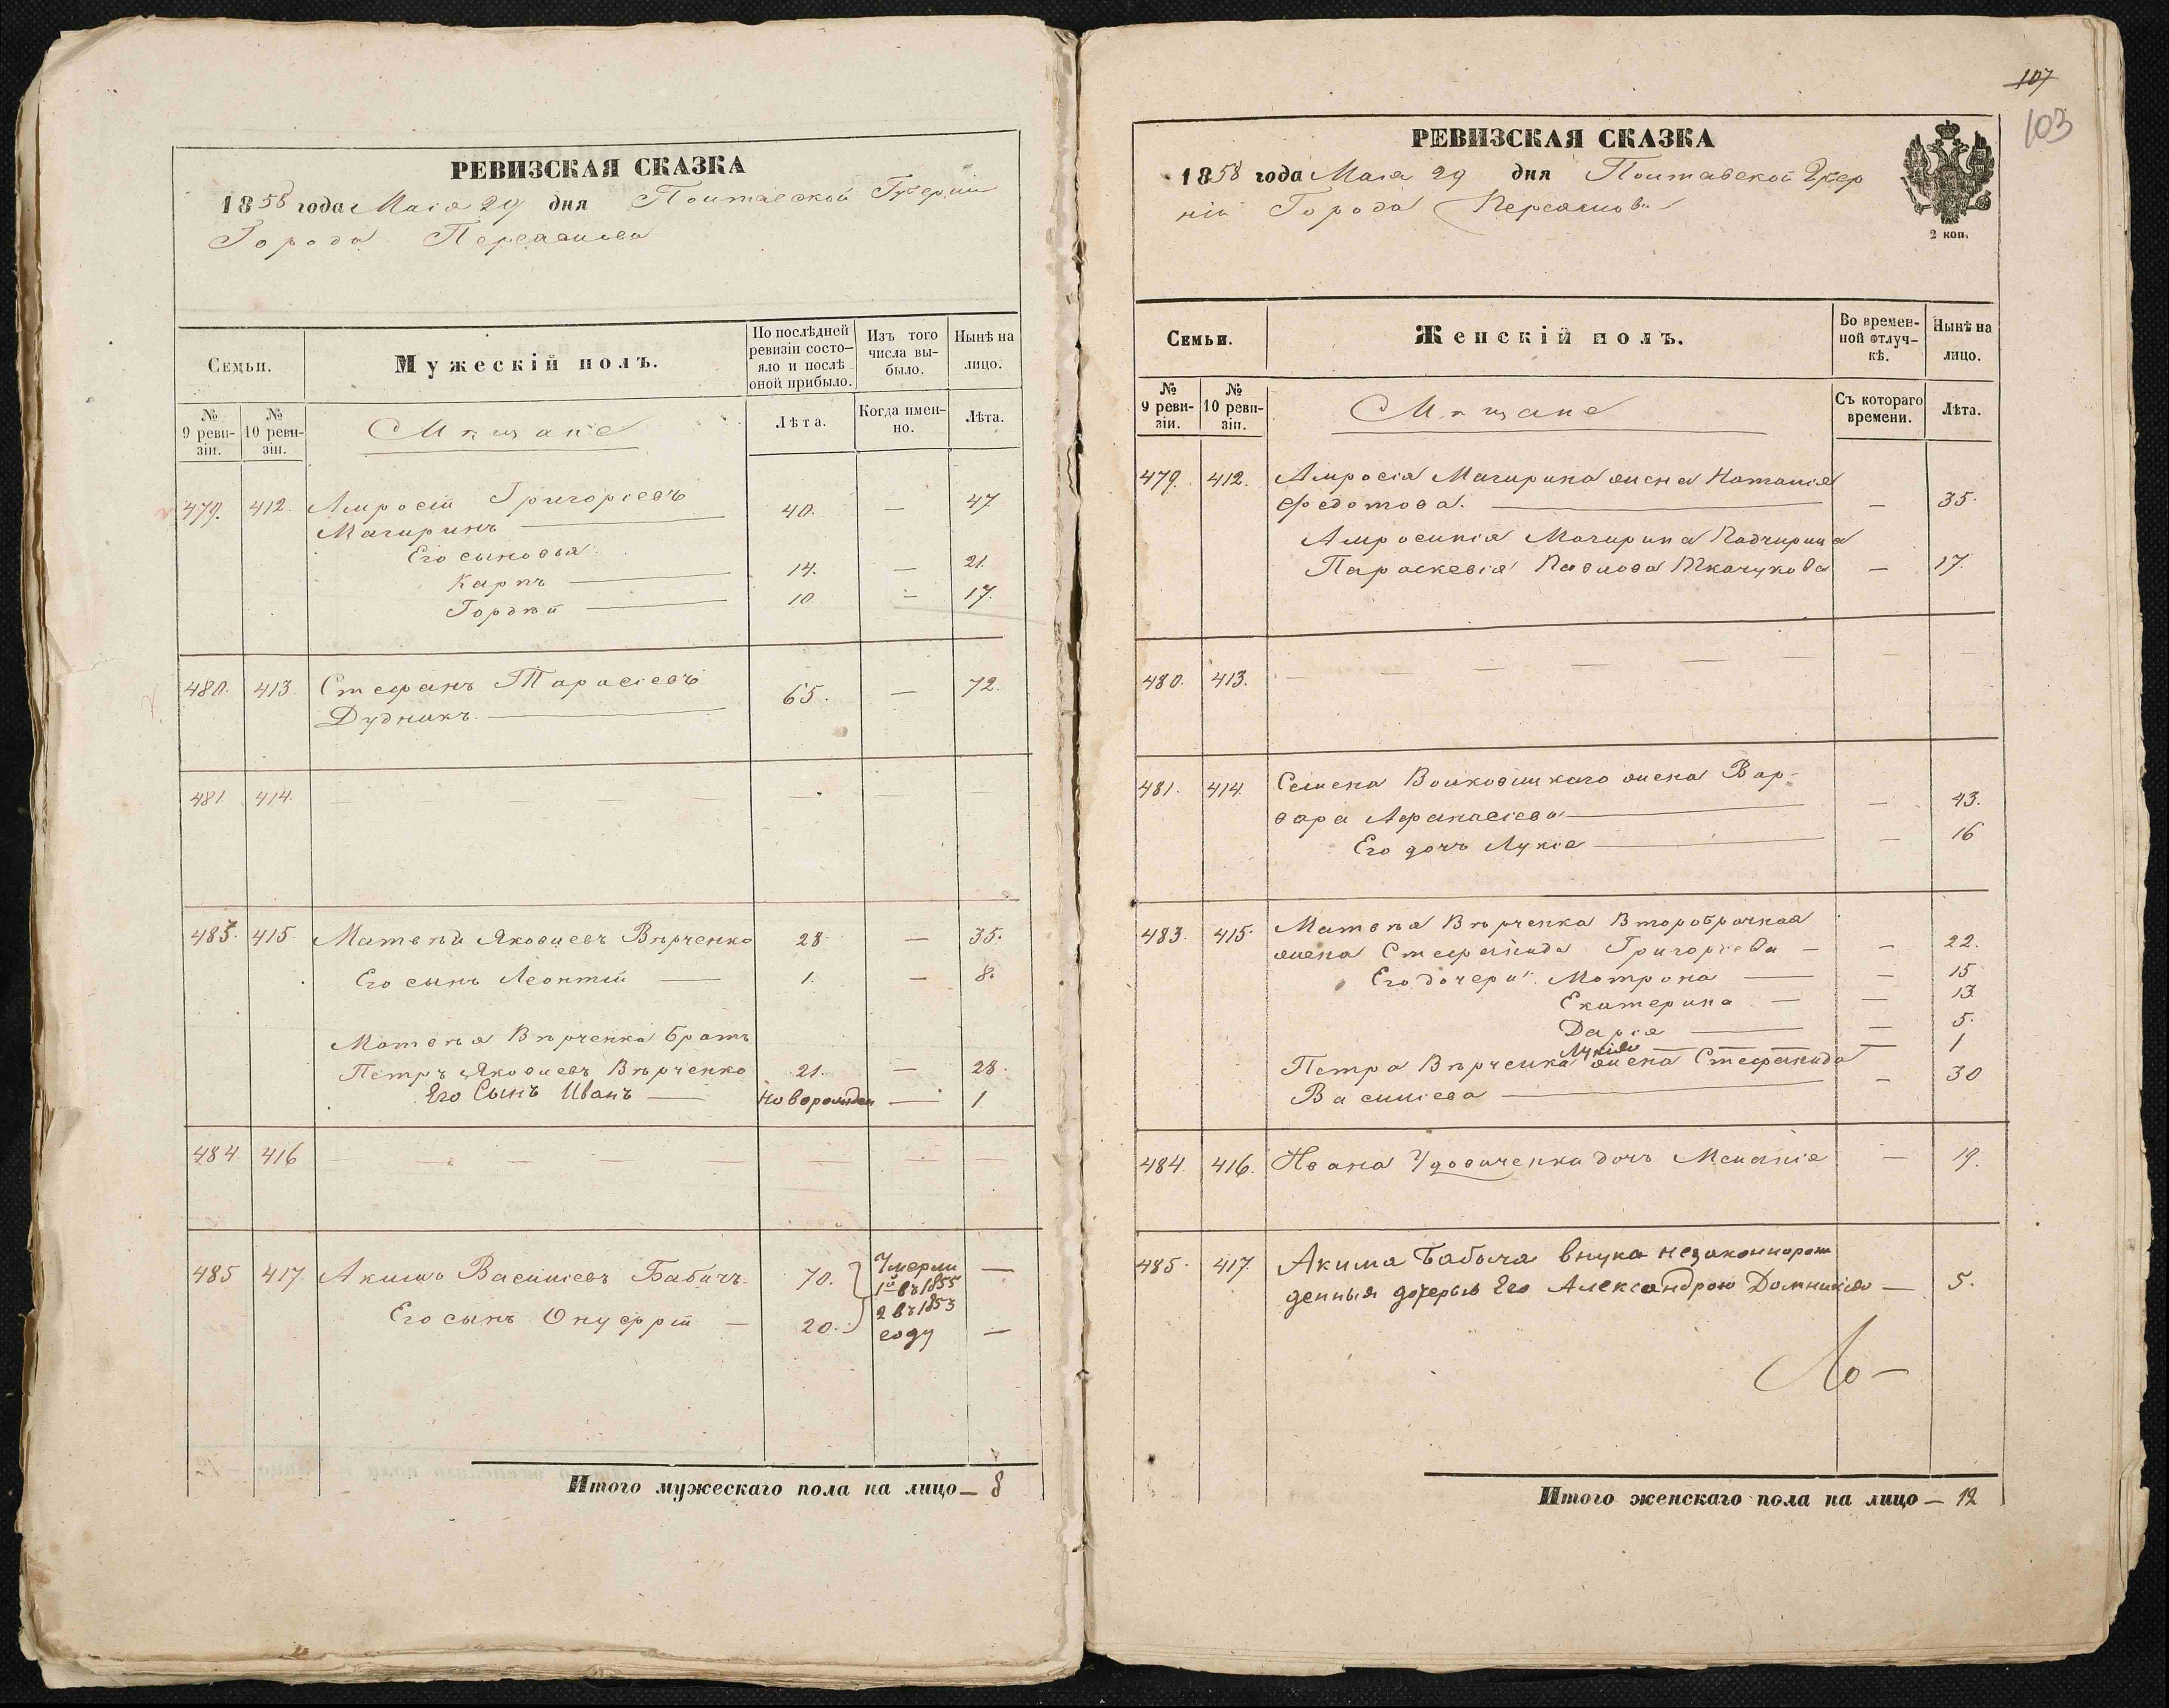 РЕВИЗСКАЯ СКАЗКА
1858 года Маія 29 дня Полтавской Губерніи
Города Переяслова
Семьи.
Мужескій полъ.
По послѣдней ревизіи состо-
яло и послѣ оной прибыло.
Изъ того числа вы-
было.
Нынѣ на лицо.
№ 9 реви-
зіи.
№ 10 реви-
зіи.
Мѣщане
Лѣта.
Когда имен-
но.
Лѣта.
479. 412. Амросій Григоріевъ
Магиринъ — 40. — 47
Его сыновья:
Карпъ — 14. — 21.
Гордѣй — 10 — 17.
480. 413. Стефанъ Тарасіевъ
Дудникъ. — 65. — 72.
481 414.
483. 415 Матвѣй Яковлевъ Вѣрченко 28. — 35.
Его сынъ Леонтій — 1. — 8.
Матвѣя Вѣрченка братъ
Петръ Яковлевъ Вѣрченко 21. — 28.
Его Сынъ Иванъ — Новорожден — 1.
484 416
485 417. Акимъ Василіевъ Бабичъ. 70. Умерли —
1й въ 1855
2 въ 1853
Его сынъ Онуфрій — 20. году —
Итого мужескаго пола на лицо — 8
107
103
РЕВИЗСКАЯ СКАЗКА
1858 года Маія 29 дня Полтавской Губер
ніи Города Переяслова
2 коп.
Семьи.
Женскій полъ.
Во времен-
ной отлуч-
кѣ.
Нынѣ на лицо.
№ 9 реви-
зіи.
№ 10 реви-
зіи.
Мѣщане
Съ котораго времени.
Лѣта.
479. 412. Амросія Магирина жена Наталія
Федотова. — — 35.
Амросинія Магирина Падчирица
Параскевія Павлова Ткачукова — 17.
480. 413.
481. 414. Семена Волковицкаго жена Вар-
вара Афанасіева — — 43.
Его дочь Лукія — — 16
483. 415. Матвѣя Вѣрченка Второбрачная
жена Стефанида Григоріева — — 22.
Его дочери: Мотрона — — 15
Екатерина — — 13.
Дарія — — 5.
Лукія — — 1
Петра Вѣрченка жена Стефанида
Василіева — — 30
484. 416. Ивана Удовиченка дочь Меланія — 19.
485. 417. Акима Бабыча внука незаконнорож
денныя дочерью Его Александрою Домникія — 5.
Итого женскаго пола на лицо — 12